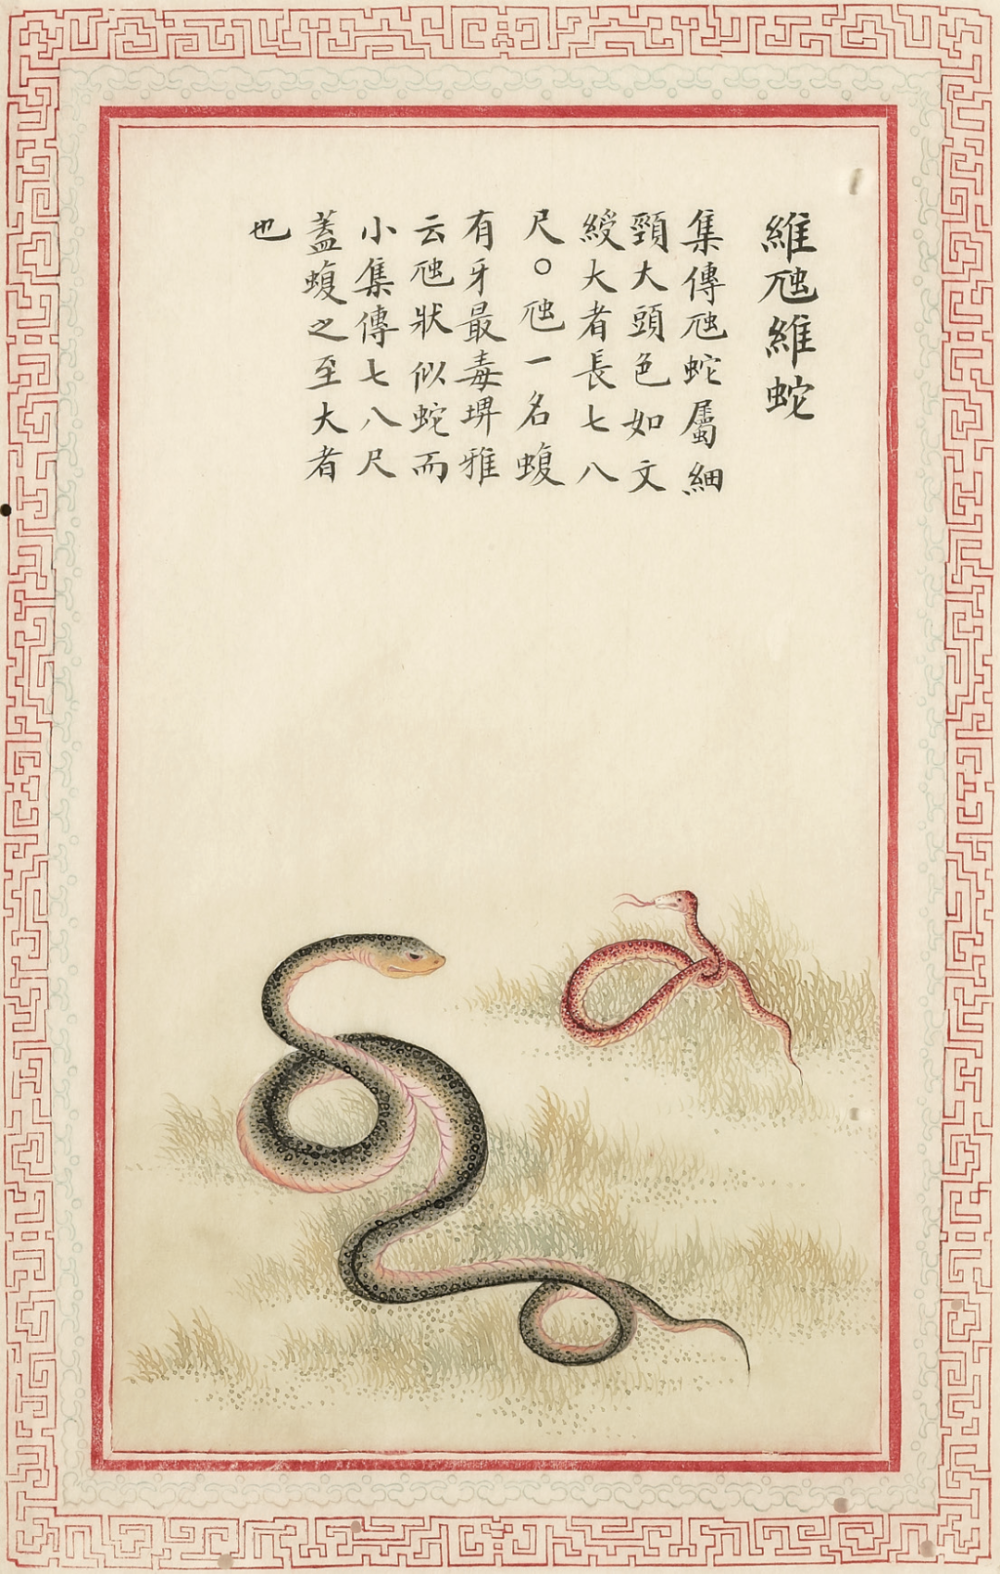 維虺維蛇
集傳虺蛇屬細
頸大頭色如文
綬大者長七八
尺○虺一名蝮
有牙最毒埤雅
云虺狀似蛇而
小集傳七八尺
蓋蝮之至大者
也